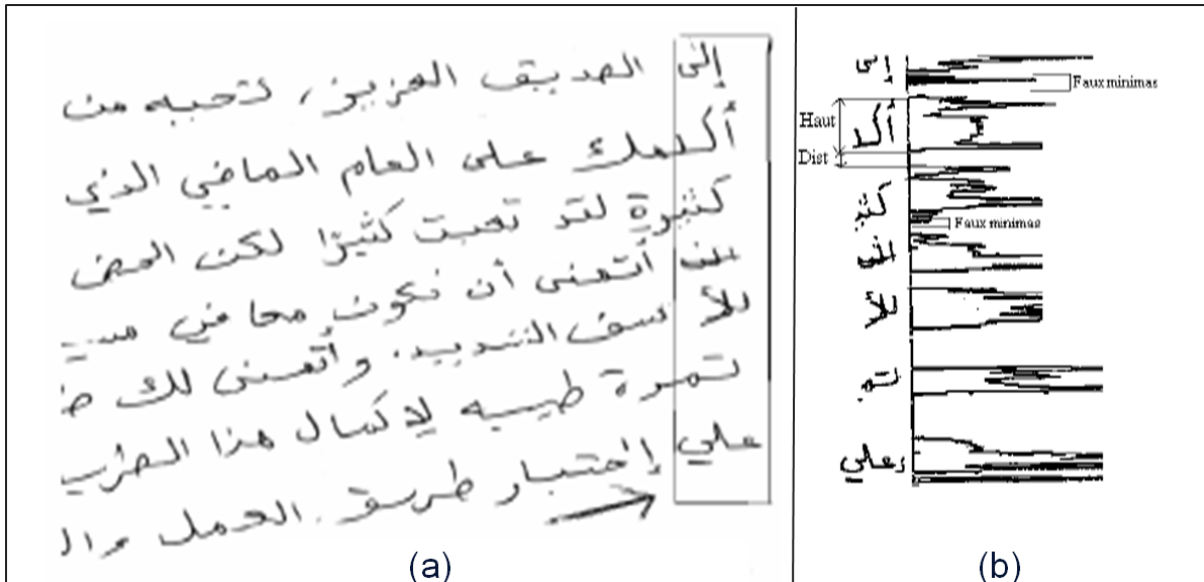 إلى الصديق العزيز، تحيه من
أكلمك على العام الماضي الذي
كثيرة لقد تعبت كثيرًا لكن الحمد
أتمنى أن تكون معافى
للأسف الشديد. وأتمنى لك
تمرة طيبه لإكمال هذا
علي إختبار طريق العمل وال
(a)
إلى
Faux minimas
أكلـ
Haut
Dist
كثيـ
Faux minimas
للأ
تمـ
علي
(b)